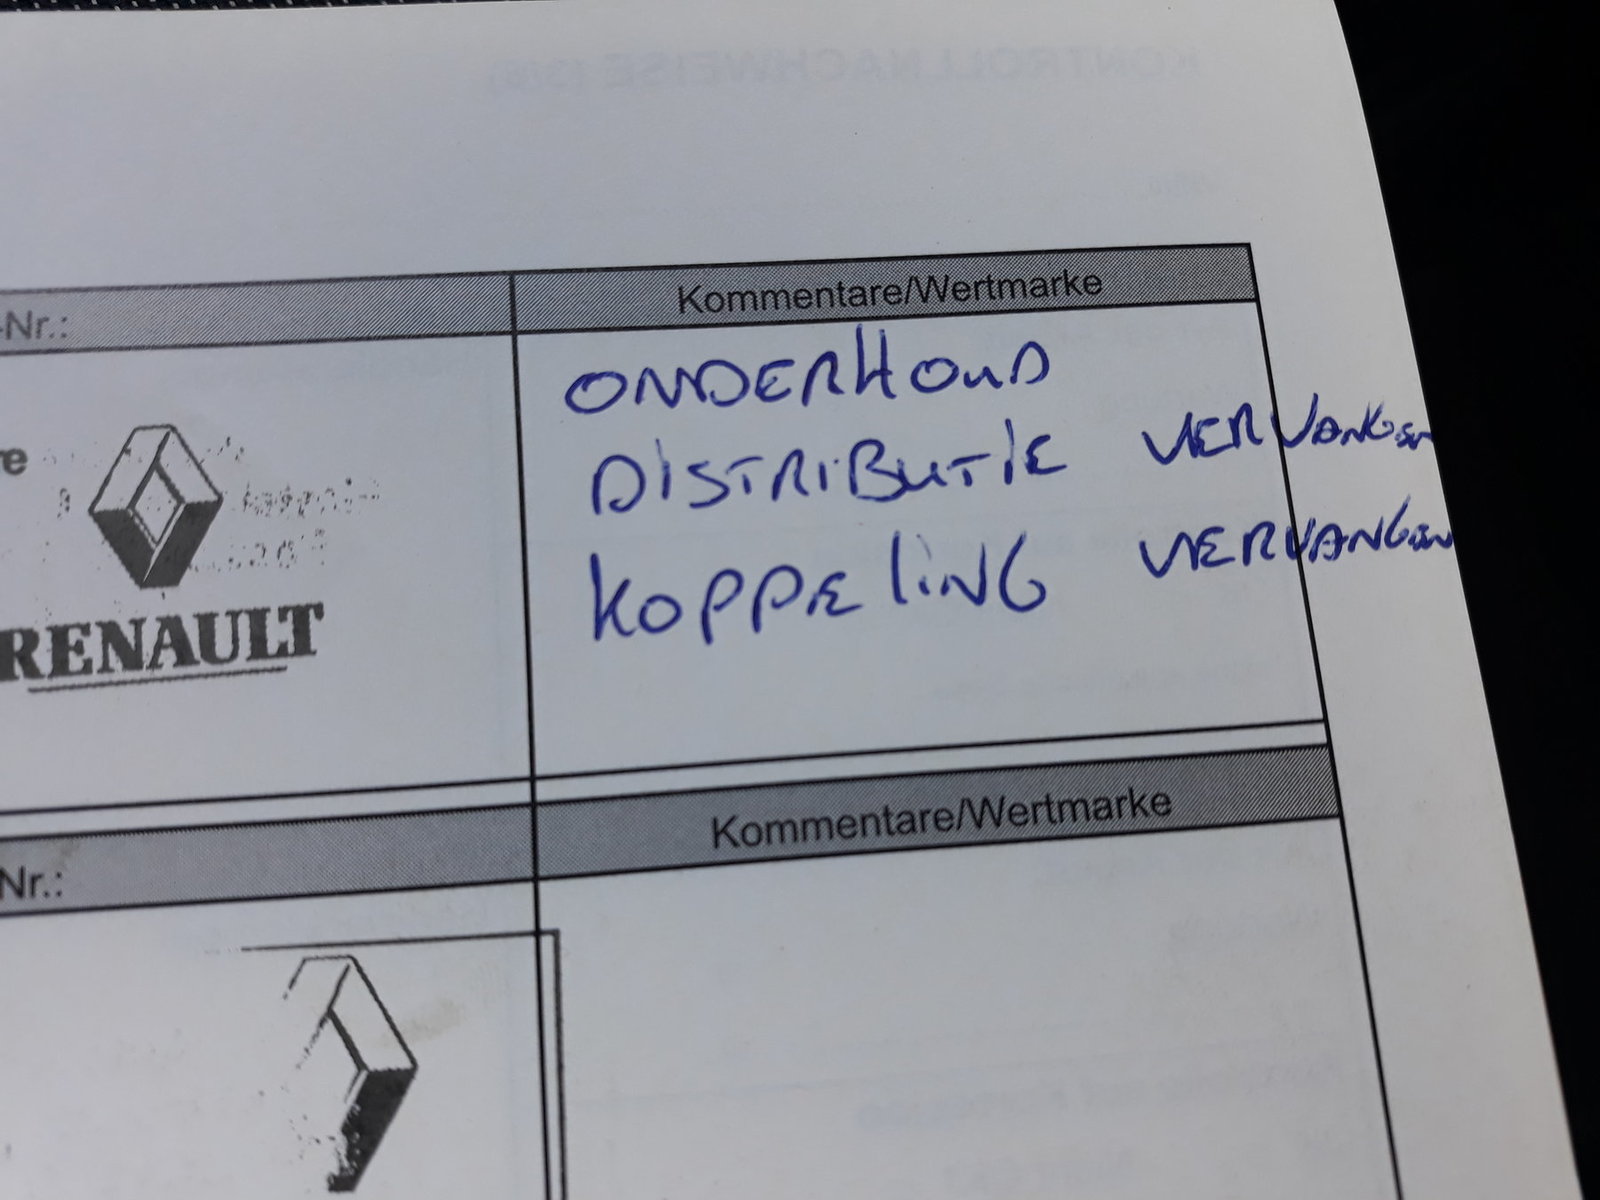 -Nr.:
Kommentare/Wertmarke
ONDERHOUD
DISTRIBUTIE VERVANGEN
KOPPELING VERVANGEN
re
RENAULT
Nr.:
Kommentare/Wertmarke